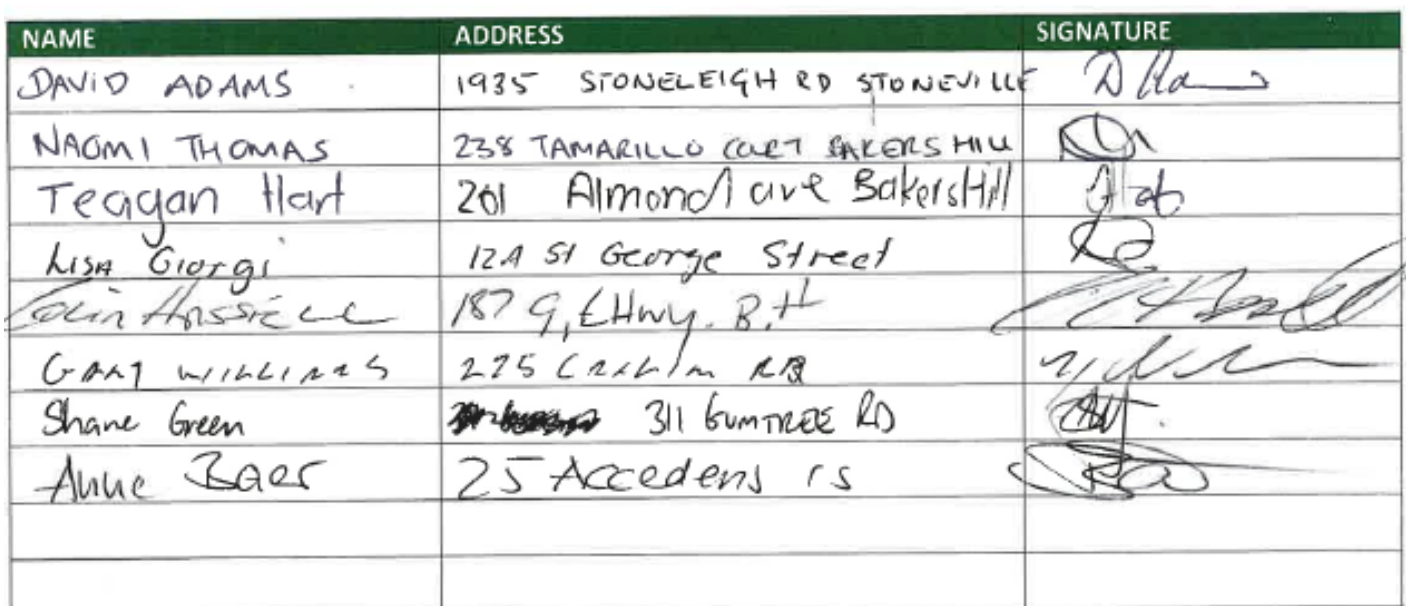 NAME ADDRESS SIGNATURE
DAVID ADAMS 1935 STONELEIGH RD STONEVILLE
NAOMI THOMAS 238 TAMARILLO COURT BAKERS HILL
Teagan Hart 201 Almond ave BakersHill
LISA Giorgi 12A St George Street
Colin 187 G, E Hwy. B.H
GARY WILLIAMS 225 RD
Shane Green 311 GUMTREE RD
Anne Baer 25 Accedens rs